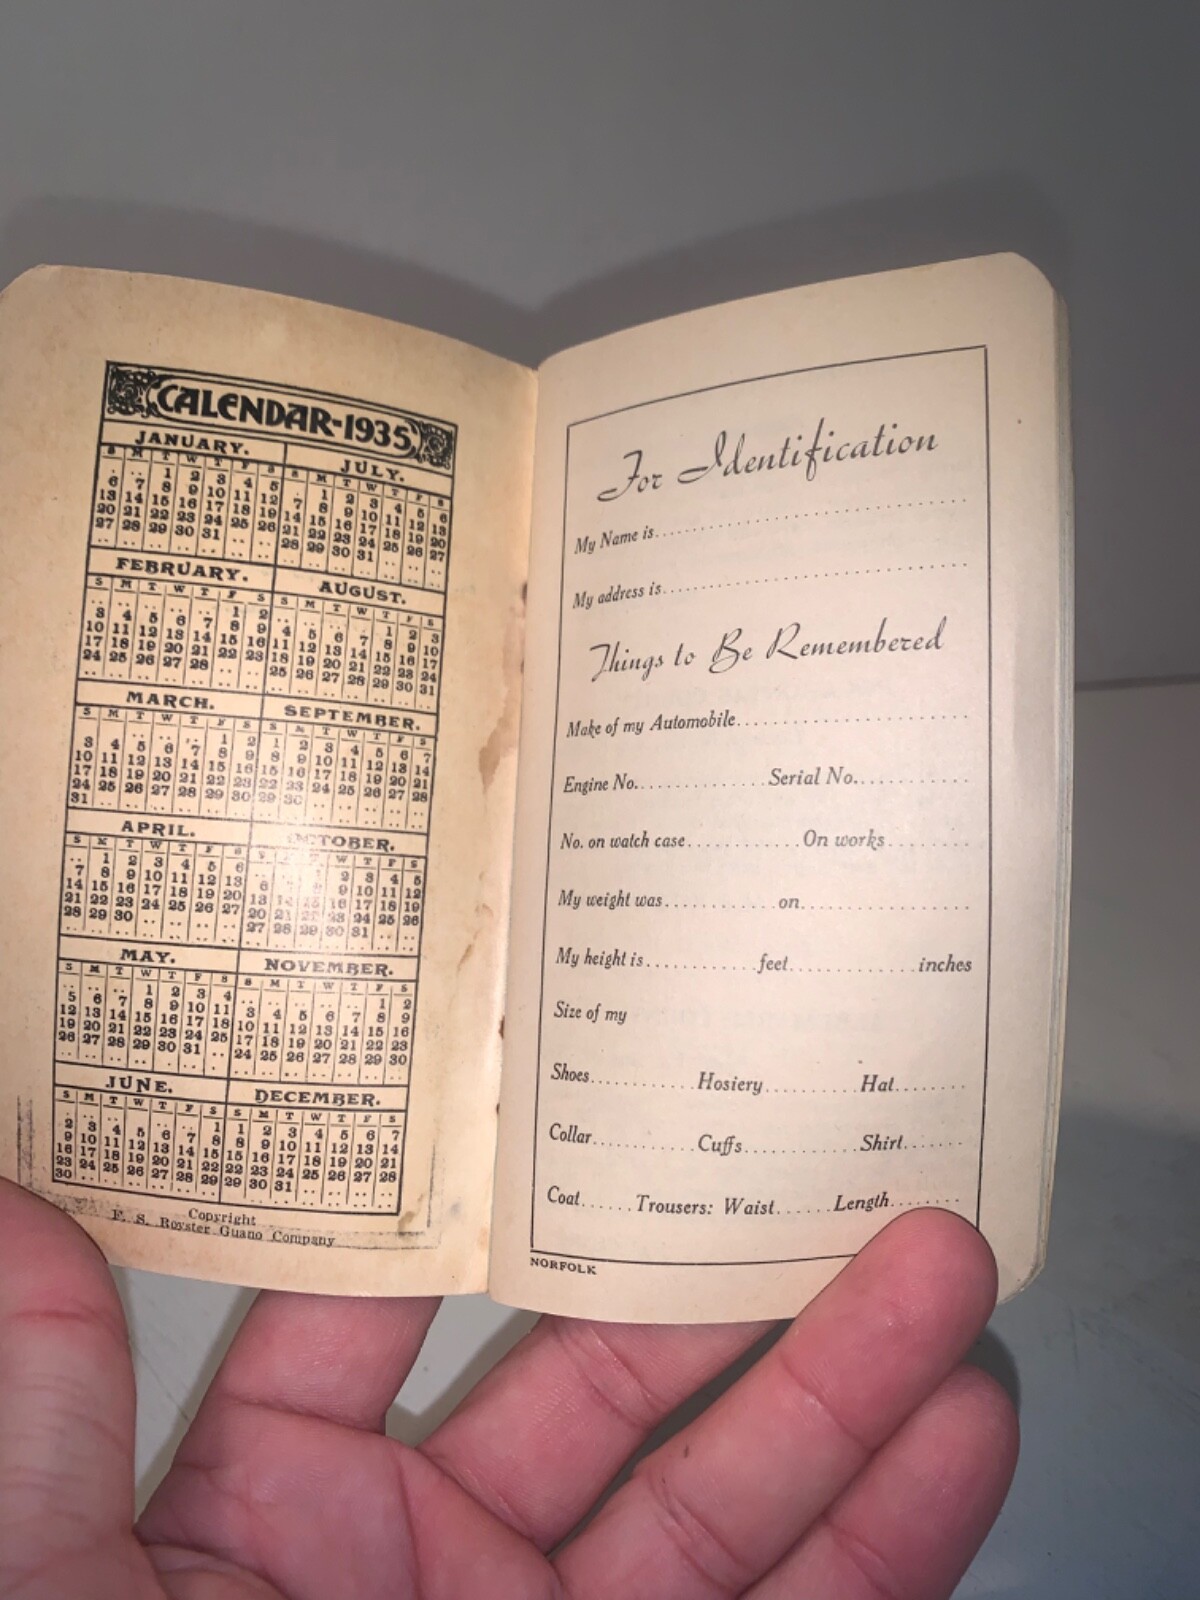 CALENDAR-1935
JANUARY.
S M T W T F S
.. .. 1 2 3 4 5
6 7 8 9 10 11 12
13 14 15 16 17 18 19
20 21 22 23 24 25 26
27 28 29 30 31 .. ..
FEBRUARY.
S M T W T F S
.. .. .. .. .. 1 2
3 4 5 6 7 8 9
10 11 12 13 14 15 16
17 18 19 20 21 22 23
24 25 26 27 28 .. ..
MARCH.
S M T W T F S
.. .. .. .. .. 1 2
3 4 5 6 7 8 9
10 11 12 13 14 15 16
17 18 19 20 21 22 23
24 25 26 27 28 29 30
31 .. .. .. .. .. ..
APRIL.
S M T W T F S
.. 1 2 3 4 5 6
7 8 9 10 11 12 13
14 15 16 17 18 19 20
21 22 23 24 25 26 27
28 29 30 .. .. .. ..
MAY.
S M T W T F S
.. .. .. 1 2 3 4
5 6 7 8 9 10 11
12 13 14 15 16 17 18
19 20 21 22 23 24 25
26 27 28 29 30 31 ..
JUNE.
S M T W T F S
.. .. .. .. .. .. 1
2 3 4 5 6 7 8
9 10 11 12 13 14 15
16 17 18 19 20 21 22
23 24 25 26 27 28 29
30 .. .. .. .. .. ..
JULY.
S M T W T F S
.. 1 2 3 4 5 6
7 8 9 10 11 12 13
14 15 16 17 18 19 20
21 22 23 24 25 26 27
28 29 30 31 .. .. ..
AUGUST.
S M T W T F S
.. .. .. .. 1 2 3
4 5 6 7 8 9 10
11 12 13 14 15 16 17
18 19 20 21 22 23 24
25 26 27 28 29 30 31
SEPTEMBER.
S M T W T F S
1 2 3 4 5 6 7
8 9 10 11 12 13 14
15 16 17 18 19 20 21
22 23 24 25 26 27 28
29 30 .. .. .. .. ..
OCTOBER.
S W T F S
.. .. 1 2 3 4 5
6 7 8 9 10 11 12
13 14 15 16 17 18 19
20 21 22 23 24 25 26
27 28 29 30 31 .. ..
NOVEMBER.
S M T W T F S
.. .. .. .. .. 1 2
3 4 5 6 7 8 9
10 11 12 13 14 15 16
17 18 19 20 21 22 23
24 25 26 27 28 29 30
DECEMBER.
S M T W T F S
1 2 3 4 5 6 7
8 9 10 11 12 13 14
15 16 17 18 19 20 21
22 23 24 25 26 27 28
29 30 31 .. .. .. ..
Copyright
F. S. Royster Guano Company
For Identification
My Name is..............................
My address is..............................
Things to Be Remembered
Make of my Automobile......................
Engine No.............Serial No...........
No. on watch case............On works........
My weight was...........on................
My height is...........feet.............inches
Size of my
Shoes...........Hosiery..........Hat.......
Collar...........Cuffs............Shirt.......
Coat......Trousers: Waist......Length........
NORFOLK